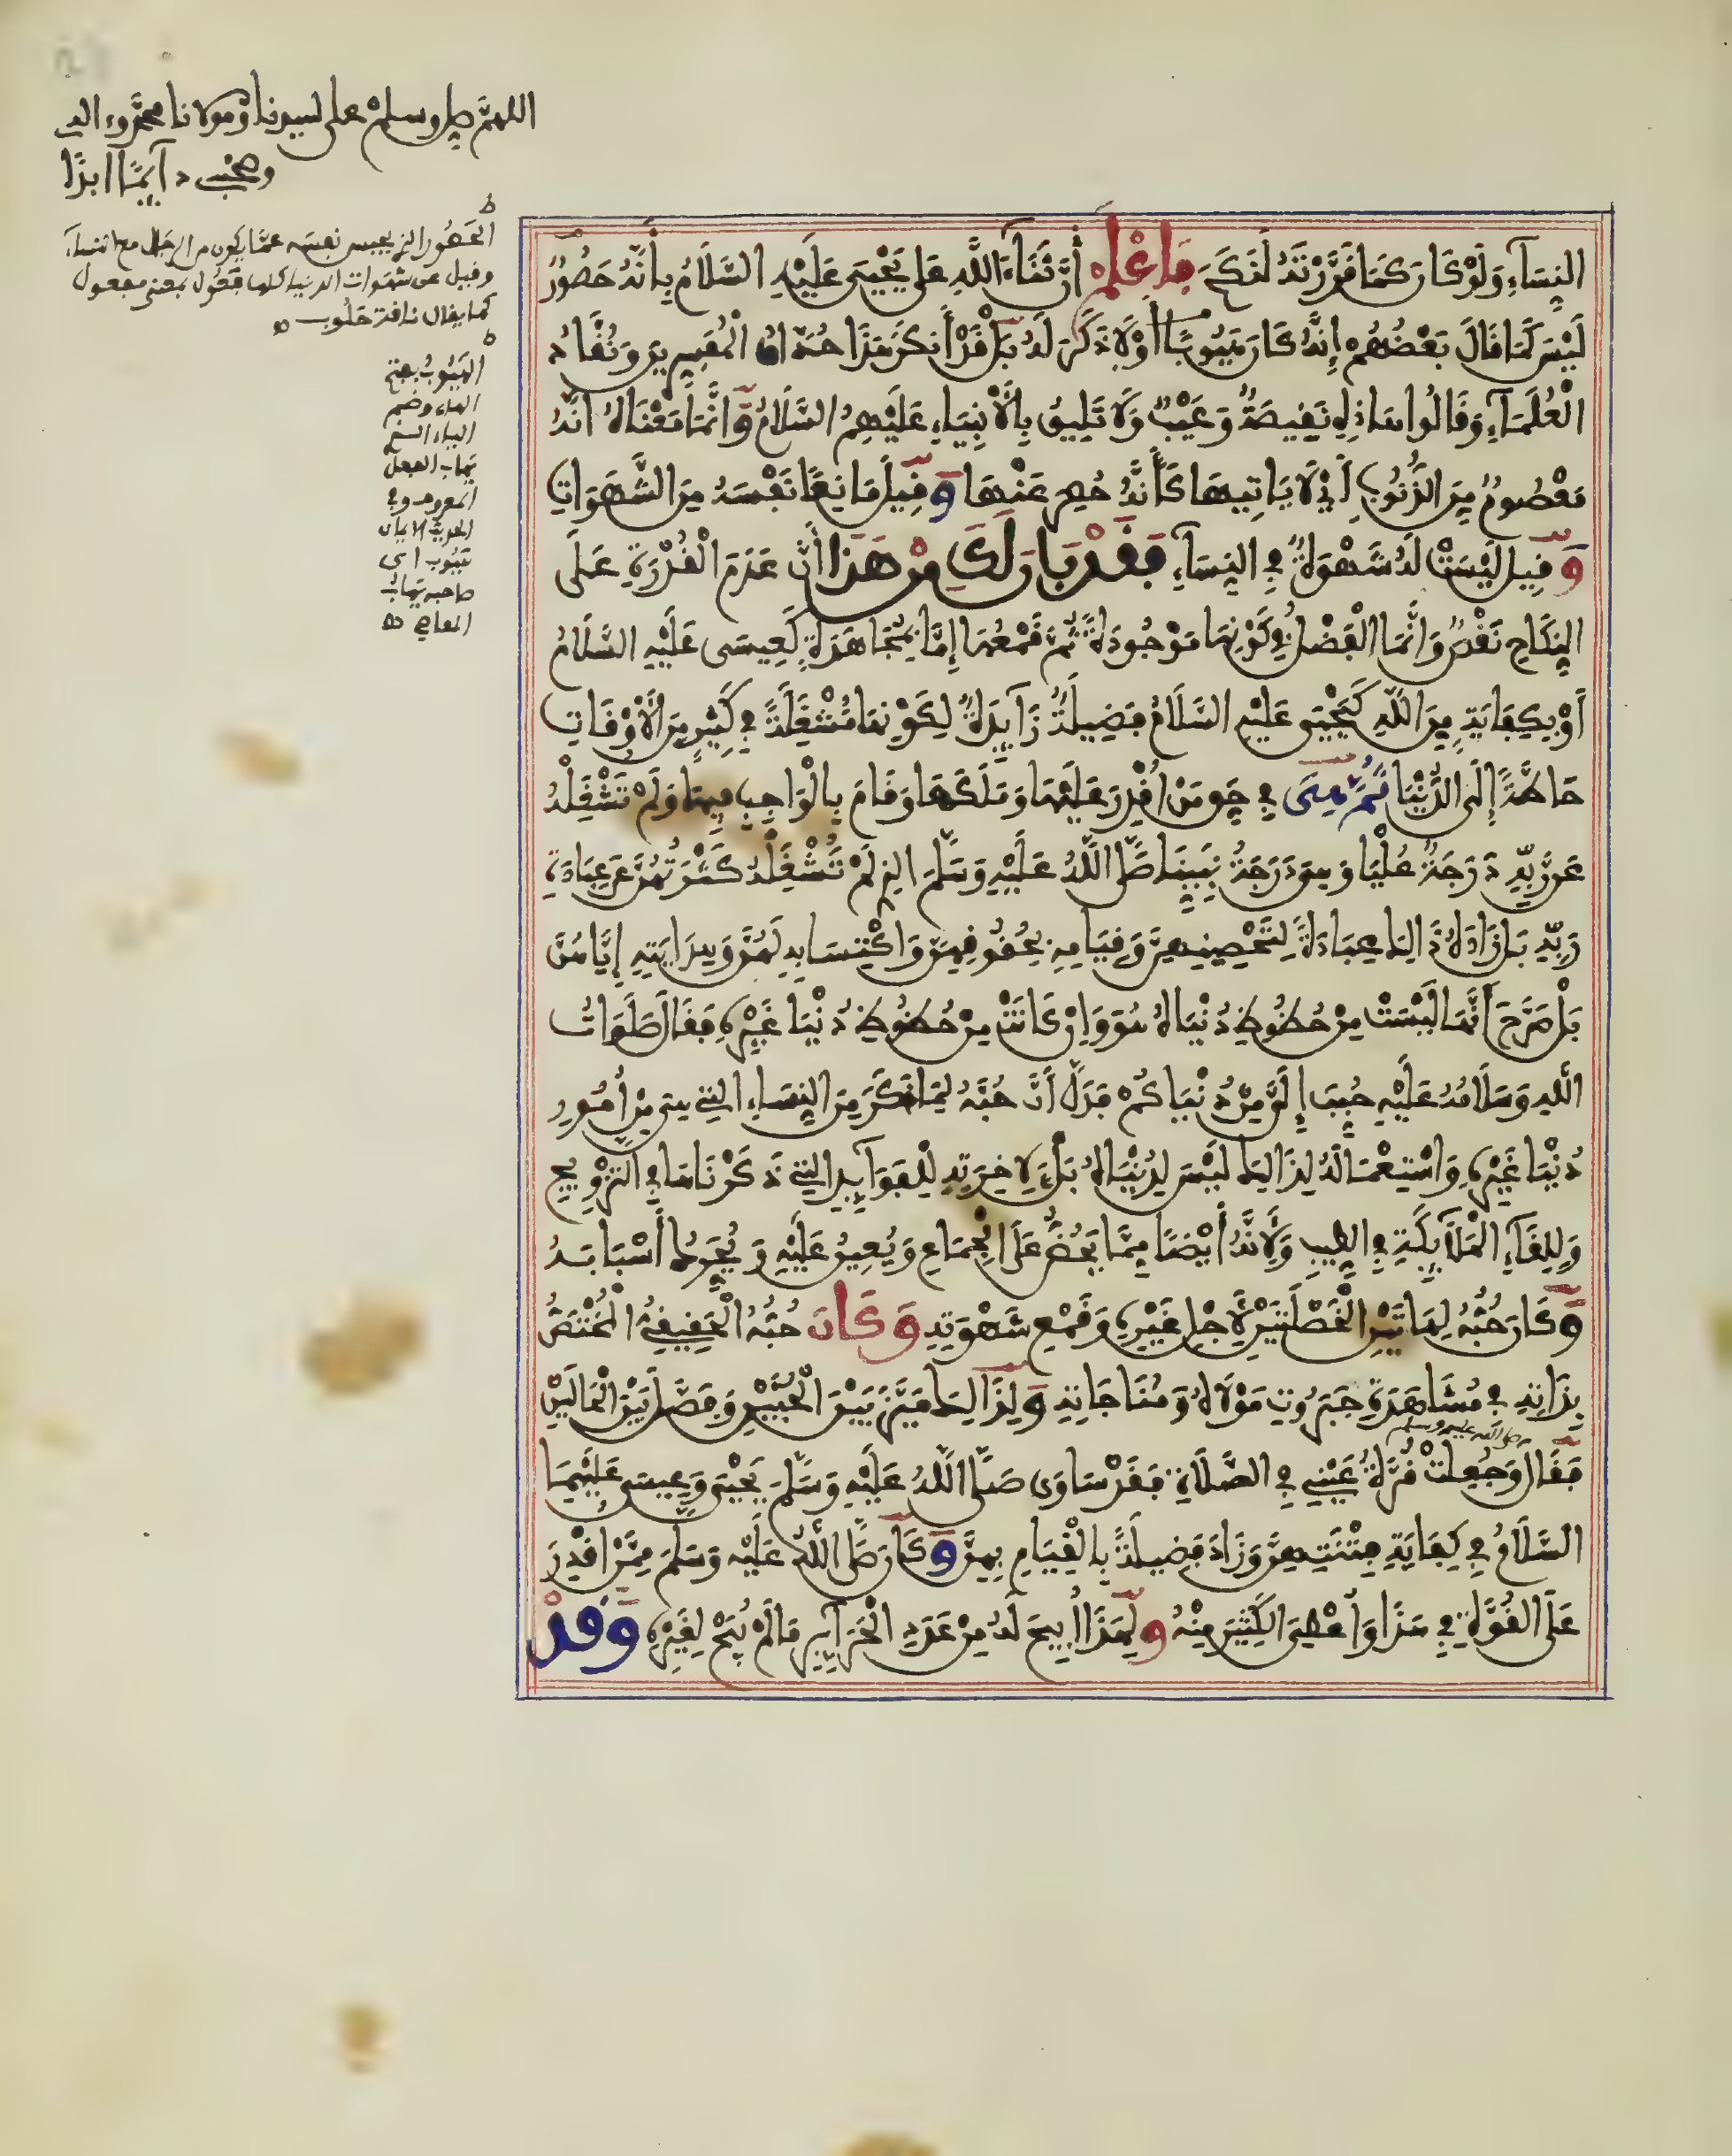 اللهم صل وسلم على سيدنا ومولانا محمد وءاله
وصحبه دآيما ابدا
الحصور الذي يحبس نفسه عما يكون من الرجال مع النساء
وقيل عن شهوات الدنيا كلها فعول بمعنى مفعول
كما يقال ناقة حلوب
الهيوب بفتح
الهاء وضم
الياء الذي
يهاب الفعل
المعروف وفي
الحديث الايمان
هيوب اي
صاحبه يهاب
المعاصي
النِّسَآءِ وَلَوْ كَانَ كَمَا قَرَّرْتَهُ لَنَكَحَ فَاعْلَمْ أَنَّ ثَنَاءَ اللَّهِ عَلَى يَحْيَى عَلَيْهِ السَّلَامُ بِأَنَّهُ حَصُورٌ
لَيْسَ كَمَا قَالَ بَعْضُهُمْ إِنَّهُ كَانَ هَيُوبًا أَوْ لَا ذَكَرَ لَهُ بَلْ قَدْ أَنكَرَ هَذَا حُذَّاقُ الْمُفَسِّرِينَ وَنُقَّادُ
الْعُلَمَآءِ وَقَالُوا هَذِهِ نَقِيصَةٌ وَعَيْبٌ وَلَا تَلِيقُ بِالْأَنْبِيَاءِ عَلَيْهِمُ السَّلَامُ وَإِنَّمَا مَعْنَاهُ أَنَّهُ
مَعْصُومٌ مِنَ الذُّنُوبِ أَيْ لَا يَاتِيهَا كَأَنَّهُ حُصِرَ عَنْهَا وَقِيلَ مَانِعًا نَفْسَهُ مِنَ الشَّهَوَاتِ
وَقِيلَ لَيْسَتْ لَهُ شَهْوَةٌ فِي النِّسَآءِ فَقَدْ بَانَ لَكَ مِنْ هَذَا أَنَّ عَدَمَ الْقُدْرَةِ عَلَى
النِّكَاحِ نَقْصٌ وَإِنَّمَا الْفَضْلُ فِي كَوْنِهَا مَوْجُودَةً ثُمَّ قَمْعُهَا إِمَّا بِمُجَاهَدَةٍ كَعِيسَى عَلَيْهِ السَّلَامُ
أَوْ بِكِفَايَةٍ مِنَ اللَّهِ كَيَحْيَى عَلَيْهِ السَّلَامُ فَضِيلَةٌ زَآيِدَةٌ لِكَوْنِهَا مُشْغِلَةً فِي كَثِيرٍ مِنَ الْأَوْقَاتِ
حَاطَّةً إِلَى الدُّنْيَا ثُمَّ هِيَ فِي حَقِّ مَنْ أُقْدِرَ عَلَيْهَا وَمَلَكَهَا وَقَامَ بِالْوَاجِبِ فِيهَا وَلَمْ تَشْغَلْهُ
عَنْ رَبِّهِ دَرَجَةٌ عُلْيَا وَهِيَ دَرَجَةُ نَبِيِّنَا صَلَّى اللَّهُ عَلَيْهِ وَسَلَّمَ الذي لَمْ تَشْغَلْهُ كَثْرَتُهُنَّ عَنْ عِبَادَةِ
رَبِّهِ بَلْ زَادَهُ ذَالِكَ عِبَادَةً لِتَحْصِينِهِنَّ وَقِيَامِهِ بِحُقُوقِهِنَّ وَاكْتِسَابِهِ لَهُنَّ وَهِدَايَتِهِ إِيَّاهُنَّ
بَلْ صَرَّحَ أَنَّهَا لَيْسَتْ مِنْ حُظُوظِ دُنْيَاهُ هُوَ وَإِنْ كَانَتْ مِنْ حُظُوظِ دُنْيَا غَيْرِهِ فَقَالَ صَلَوَاتُ
اللَّهِ وَسَلَامُهُ عَلَيْهِ حُبِّبَ إِلَيَّ مِنْ دُنْيَاكُمْ فَدَلَّ أَنَّ حُبَّهُ لِمَا ذَكَرَ مِنَ النِّسَاءِ التي هِيَ مِنْ أُمُورِ
دُنْيَا غَيْرِهِ وَاسْتِعْمَالَهُ لِذَالِكَ لَيْسَ لِدُنْيَاهُ بَلْ لِآخِرَتِهِ لِلْفَوَآيِدِ التي ذَكَرْنَاهَا فِي التَّزْوِيجِ
وَلِلِقَآءِ الْمَلَآيِكَةِ فِي الطِّيبِ وَلِأَنَّهُ أَيْضًا مِمَّا يَحُضُّ عَلَى الْجِمَاعِ وَيُعِينُ عَلَيْهِ وَيُحَرِّكُ أَسْبَابَهُ
وَكَانَ حُبُّهُ لِهَاتَيْنِ الْخَصْلَتَيْنِ لِأَجْلِ غَيْرِهِ وَقَمْعِ شَهْوَتِهِ وَكَانَ حُبُّهُ الْحَقِيقِيُّ الْمُخْتَصُّ
بِذَاتِهِ فِي مُشَاهَدَةِ جَبَرُوتِ مَوْلَاهُ وَمُنَاجَاتِهِ وَلِذَالِكَ مَيَّزَ بَيْنَ الْحُبَّيْنِ وَفَصَلَ بَيْنَ الْحَالَيْنِ
صلى الله عليه وسلم
فَقَالَ وَجُعِلَتْ قُرَّةُ عَيْنِي فِي الصَّلَاةِ فَقَدْ سَاوَى صَلَّى اللَّهُ عَلَيْهِ وَسَلَّمَ يَحْيَى وَعِيسَى عَلَيْهِمَا
السَّلَامُ فِي كِفَايَةِ فِتْنَتِهِنَّ وَزَادَ فَضِيلَةً بِالْقِيَامِ بِهِنَّ وَكَانَ صَلَّى اللَّهُ عَلَيْهِ وَسَلَّمَ مِمَّنْ أُقْدِرَ
عَلَى الْقُوَّةِ فِي هَذَا وَأُعْطِيَ الْكَثِيرَ مِنْهُ وَلِهَذَا أُبِيحَ لَهُ مِنْ عَدَدِ الْحَرَآيِرِ مَا لَمْ يُبَحْ لِغَيْرِهِ وَقَدْ